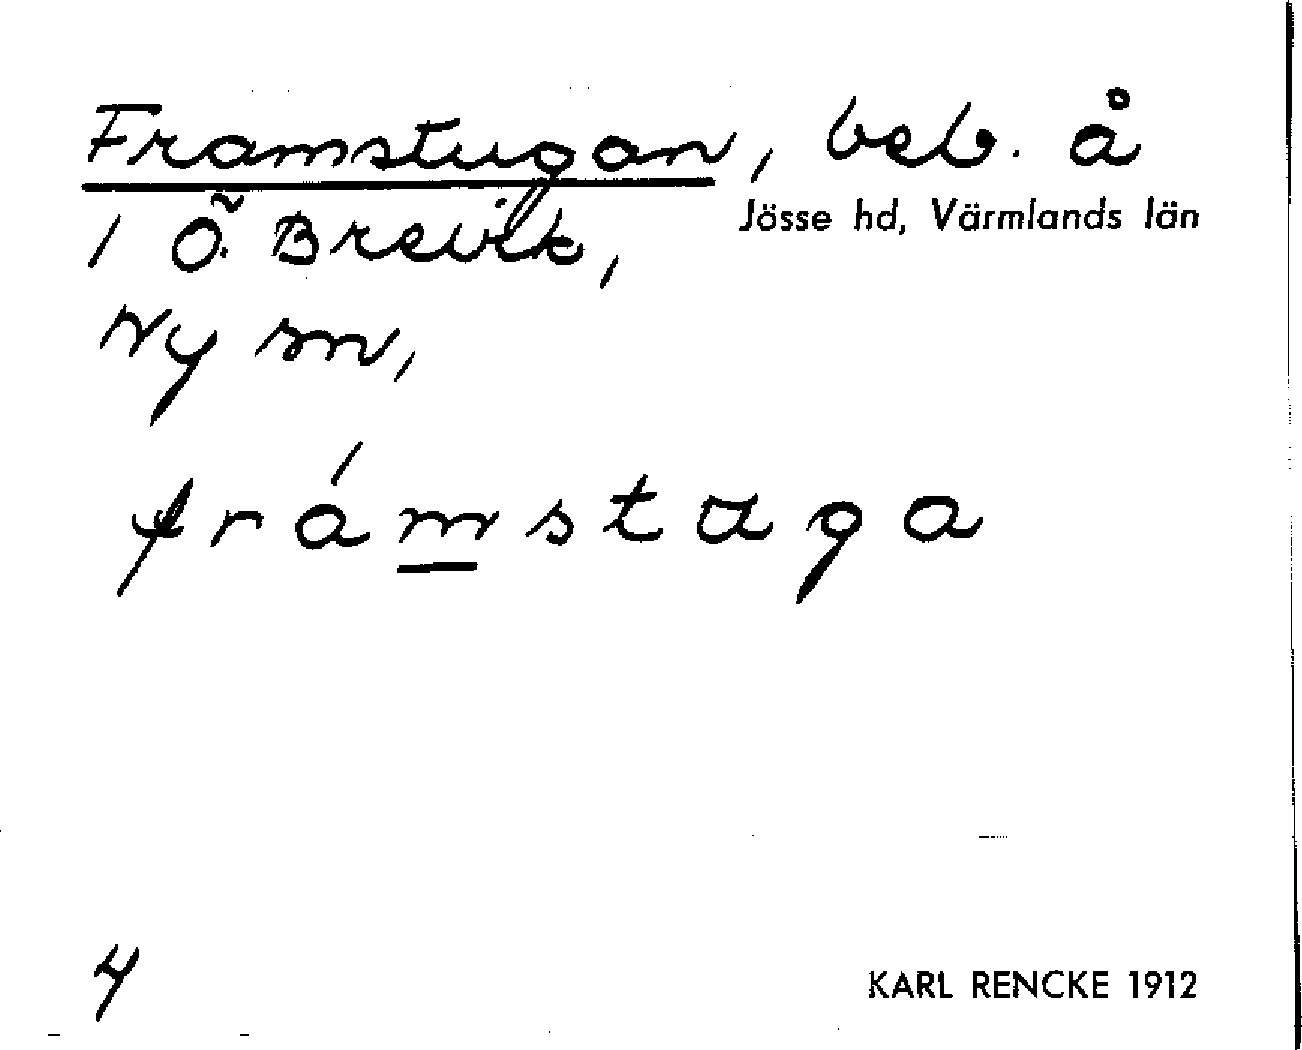 Framstugan, beb. å
1 Ö. Brevik, Jösse hd, Värmlands län
Ny sn,
frámstuga
4
KARL RENCKE 1912